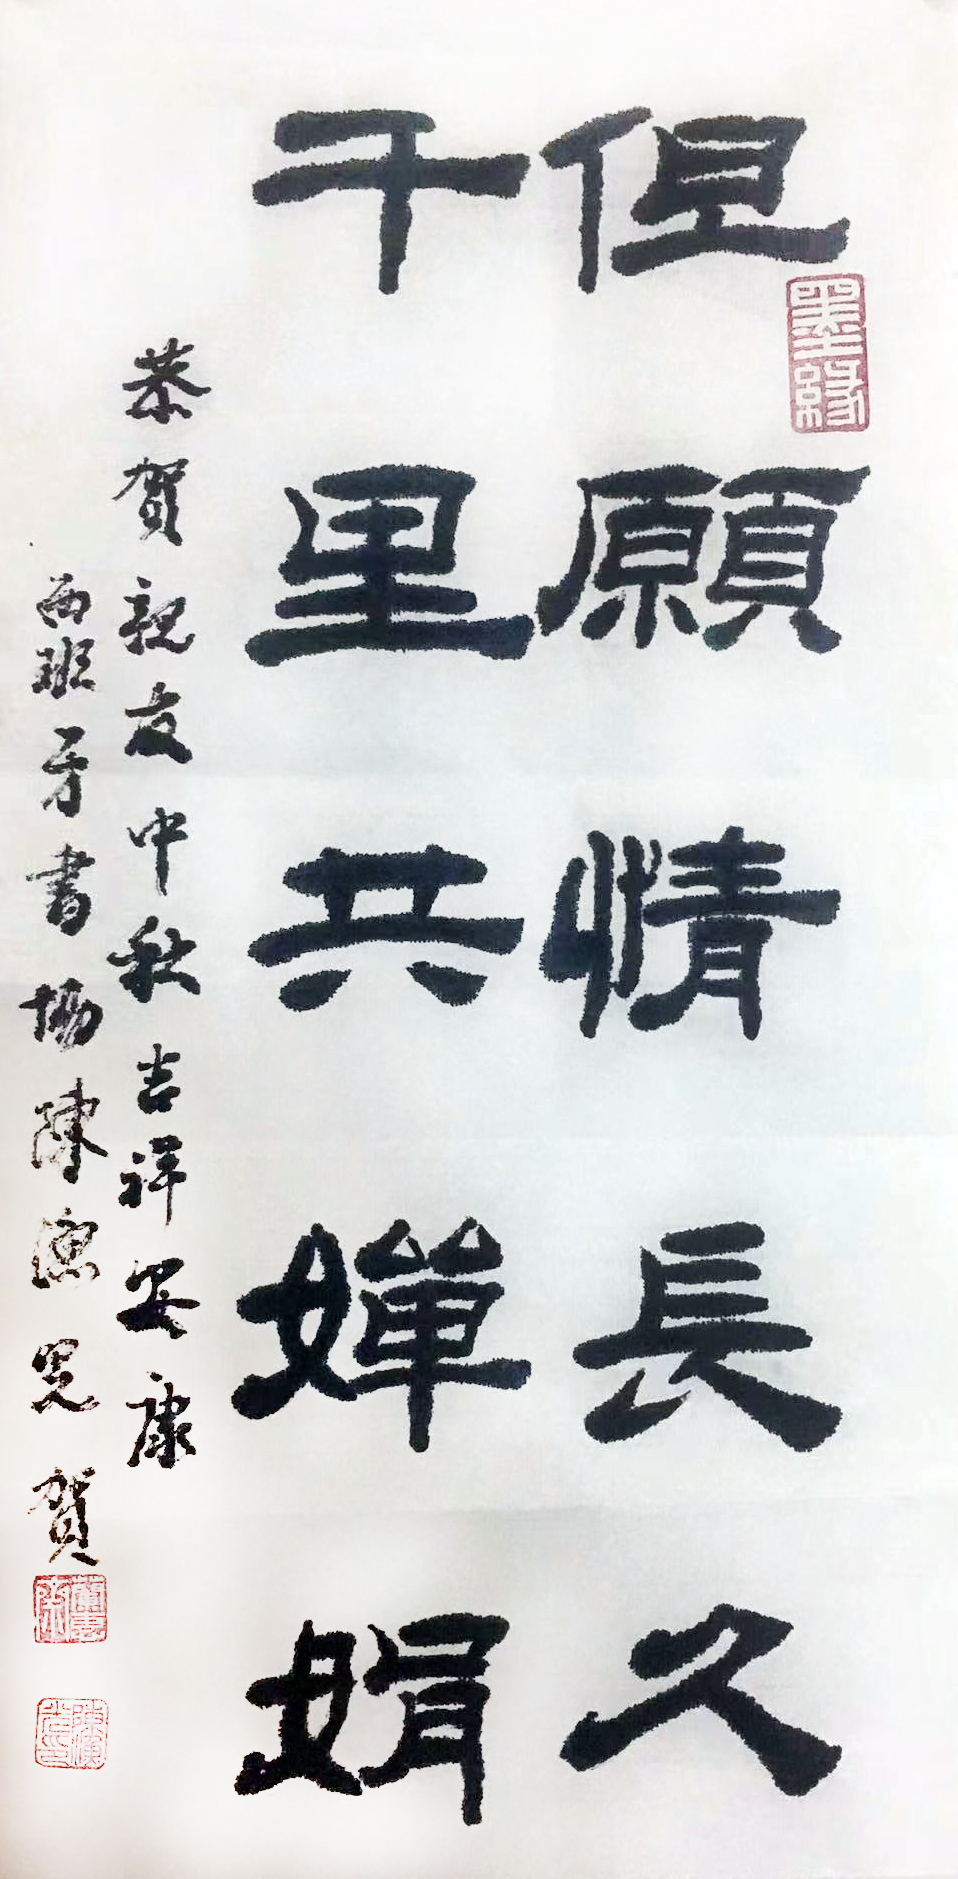 但願情長久
墨緣
千里共嬋娟
恭賀親友中秋吉祥安康
西班牙書協陳漁賀